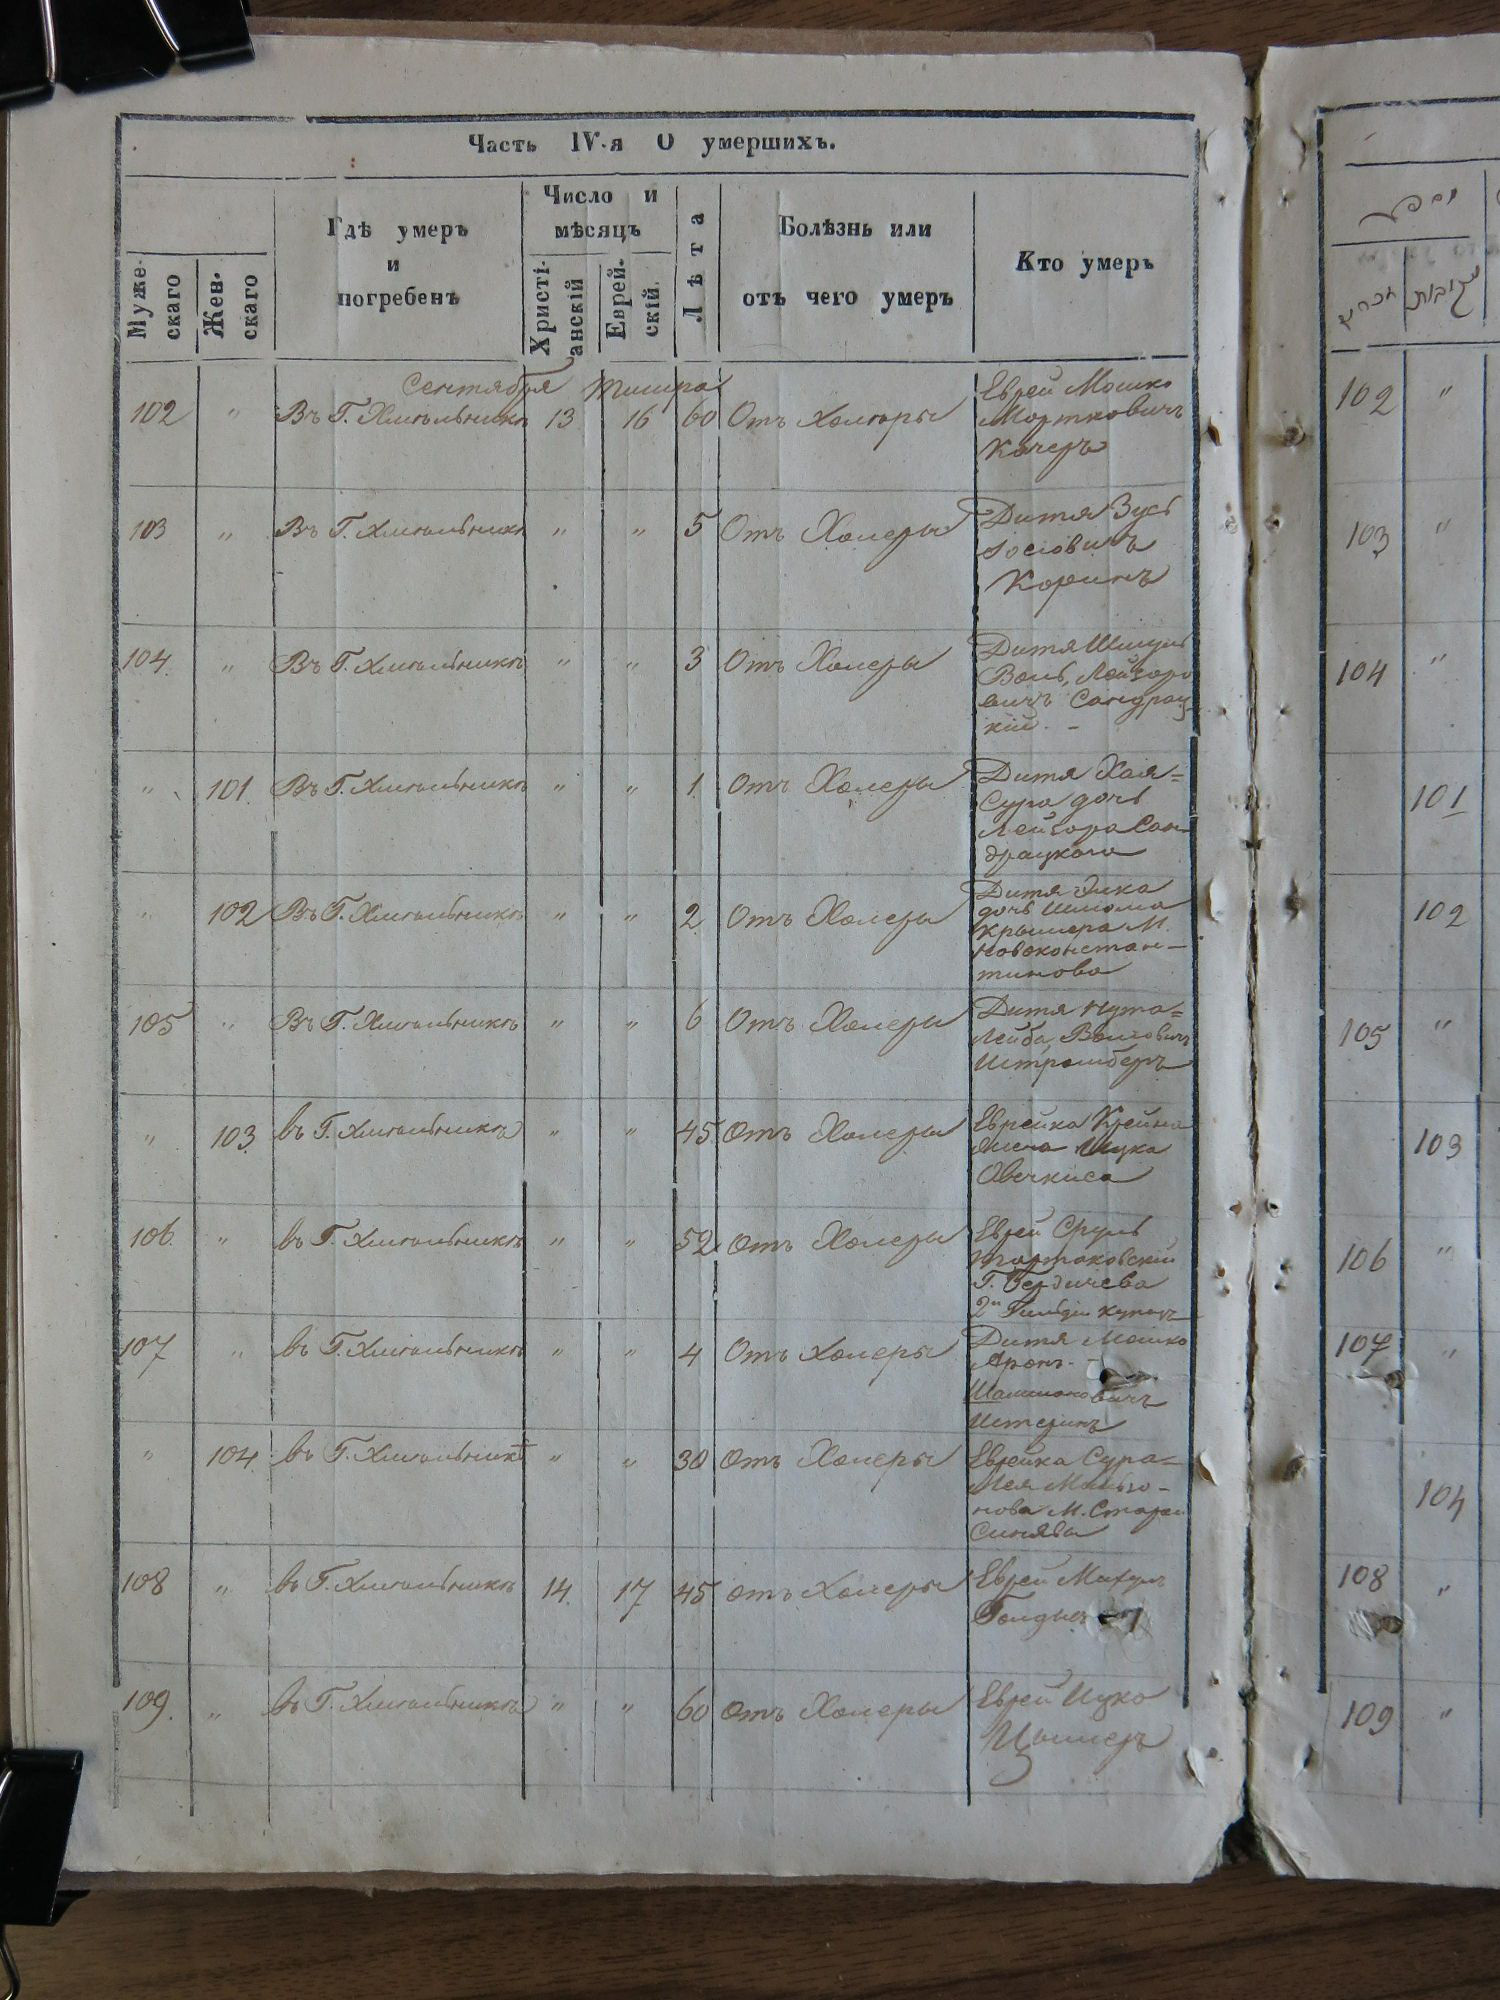 Часть IV-я О умершихъ.
Муже-
скаго
Жен-
скаго
Гдѣ умеръ
и
погребенъ
Число и
мѣсяцъ
Христі-
анскій
Еврей-
скій
Лѣта
Болѣзнь или
отъ чего умеръ
Кто умеръ
Сентября Тишра
102 " Въ Г. Хмѣльникѣ 13 16 60 Отъ Холеры Еврей Мошко
Мортковичъ
Качеръ
103 " Въ Г. Хмѣльникѣ " " 5 Отъ Холеры Дитя Зусь
Іосіовичъ
Коринъ
104 " Въ Г. Хмѣльникѣ " " 3 Отъ Холеры Дитя Шмуль
Волъ, Лейзоро
вичъ Сандрац-
кій. -
" 101 Въ Г. Хмѣльникѣ " " 1 Отъ Холеры Дитя Хая=
Сура дочь
Лейзора Сан-
драцкого
" 102 Въ Г. Хмѣльникѣ " " 2 Отъ Холеры Дитя Элка
дочь Шлома
М.
Новоконстан-
тинова
105 " Въ Г. Хмѣльникѣ " " 6 Отъ Холеры Дитя Нута=
Лейба,
" 103 въ Г. Хмѣльникѣ " " 45 Отъ Холеры Еврейка Крейна
жена Ицка
106 " въ Г. Хмѣльникѣ " " 52 Отъ Холеры Еврей Сруль
Тартаковскій
Г. Бердичева
2й Гильдіи купецъ
107 " въ Г. Хмѣльникѣ " " 4 Отъ Холеры Дитя Мошко
Аронъ -
" 104 въ Г. Хмѣльникѣ " " 30 Отъ Холеры Еврейка Сура=
нова М. Старой
Синявы
108 " въ Г. Хмѣльникѣ 14 17 45 отъ Холеры Еврей
109 " въ Г. Хмѣльникѣ " " 60 Отъ Холеры Еврей Ицко
Цымеръ
נקבות
102 "
103 "
104 "
101
102
105 "
103
106 "
107 "
104
108 "
109 "